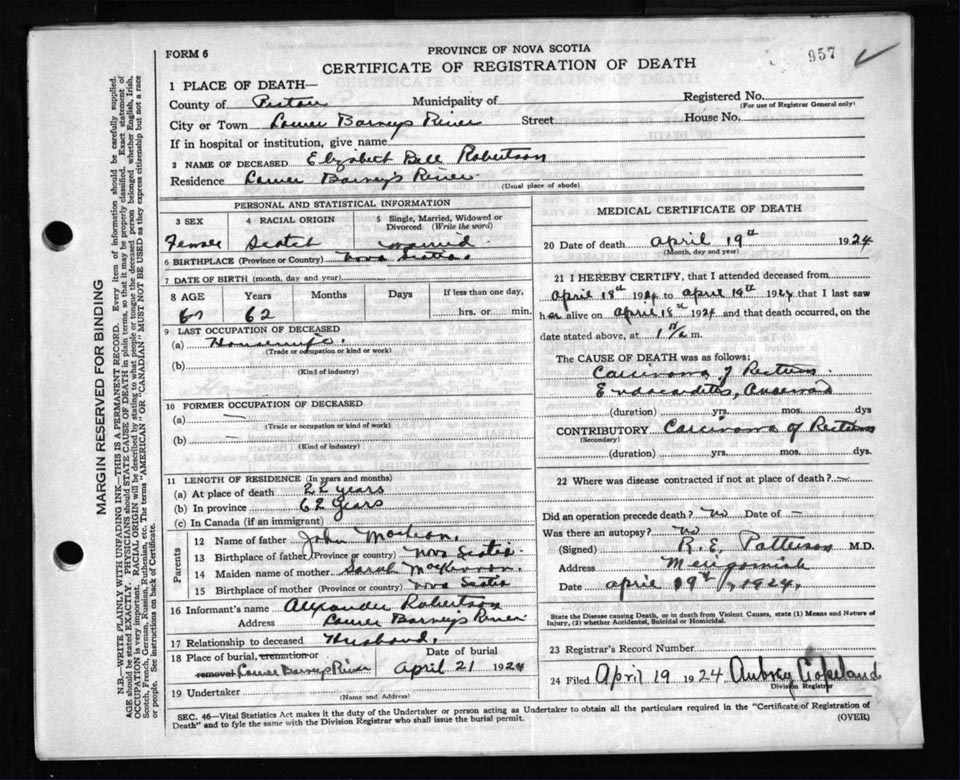 957 ✓
FORM 6
PROVINCE OF NOVA SCOTIA
CERTIFICATE OF REGISTRATION OF DEATH
1 PLACE OF DEATH—
County of Pictou Municipality of
Registered No.
(For use of Registrar General only)
City or Town Lower Barneys River Street House No.
If in hospital or institution, give name
2 NAME OF DECEASED Elizabeth Bell Robertson
Residence Lower Barney's River
(Usual place of abode)
PERSONAL AND STATISTICAL INFORMATION
3 SEX 4 RACIAL ORIGIN 5 Single, Married, Widowed or Divorced (Write the word)
Female Scotch married
6 BIRTHPLACE (Province or Country) Nova Scotia
7 DATE OF BIRTH (month, day and year)
8 AGE Years Months Days If less than one day,
62 hrs. or min.
9 LAST OCCUPATION OF DECEASED
(a) Housewife
(Trade or occupation or kind or work)
(b)
(Kind of industry)
10 FORMER OCCUPATION OF DECEASED
(a) —
(Trade or occupation or kind of work)
(b) —
(Kind of industry)
11 LENGTH OF RESIDENCE (In years and months)
(a) At place of death 22 years
(b) In province 62 years
(c) In Canada (if an immigrant)
Parents
12 Name of father John
13 Birthplace of father (Province or country) Nova Scotia
14 Maiden name of mother Sarah MacKinnon
15 Birthplace of mother (Province or country) Nova Scotia
16 Informant's name Alexander Robertson
Address Lower Barney's River
17 Relationship to deceased Husband.
18 Place of burial, cremation or Date of burial
removal Lower Barneys River April 21 1924
19 Undertaker
(Name and Address)
MEDICAL CERTIFICATE OF DEATH
20 Date of death april 19th 1924
(Month, day and year)
21 I HEREBY CERTIFY, that I attended deceased from
April 18th 1924 to April 19th 1924 that I last saw
her alive on April 18th 1924 and that death occurred, on
date stated above, at 1 a m.
The CAUSE OF DEATH was as follows:
Carcinoma of Rectum
Endocarditis,
(duration) yrs. mos. dys
CONTRIBUTORY Carcinoma of Rectum
(Secondary)
(duration) yrs. mos. dys.
22 Where was disease contracted if not at place of death? —
Did an operation precede death? no Date of —
Was there an autopsy? no
(Signed) R. E. Patterson M.D.
Address Merigomish
Date april 19th, 1924.
State the Disease causing Death, or in death from Violent Causes, state (1) Means and Nature of
Injury, (2) whether Accidental, Suicidal or Homicidal.
23 Registrar's Record Number
24 Filed April 19 1924 Aubrey Copeland
Division Registrar
SEC. 46—Vital Statistics Act makes it the duty of the Undertaker or person acting as Undertaker to obtain all the particulars required in the "Certificate of Registration of
Death" and to fyle the same with the Division Registrar who shall issue the burial permit.
(OVER)
MARGIN RESERVED FOR BINDING
N.B.—WRITE PLAINLY WITH UNFADING INK—THIS IS A PERMANENT RECORD. Every item of information should be carefully supplied.
AGE should be stated EXACTLY. PHYSICIANS should STATE CAUSE OF DEATH in plain terms, so that it may be properly classified. Exact statement of
OCCUPATION is very important. RACIAL ORIGIN will be described by stating to what people or tongue the deceased person belonged whether English, Irish,
Scotch, French, German, Russian, Ruthenian, etc. The terms "AMERICAN" OR "CANADIAN" MUST NOT BE USED as they express citizenship but not a race
or people. See instructions on back of Certificate.